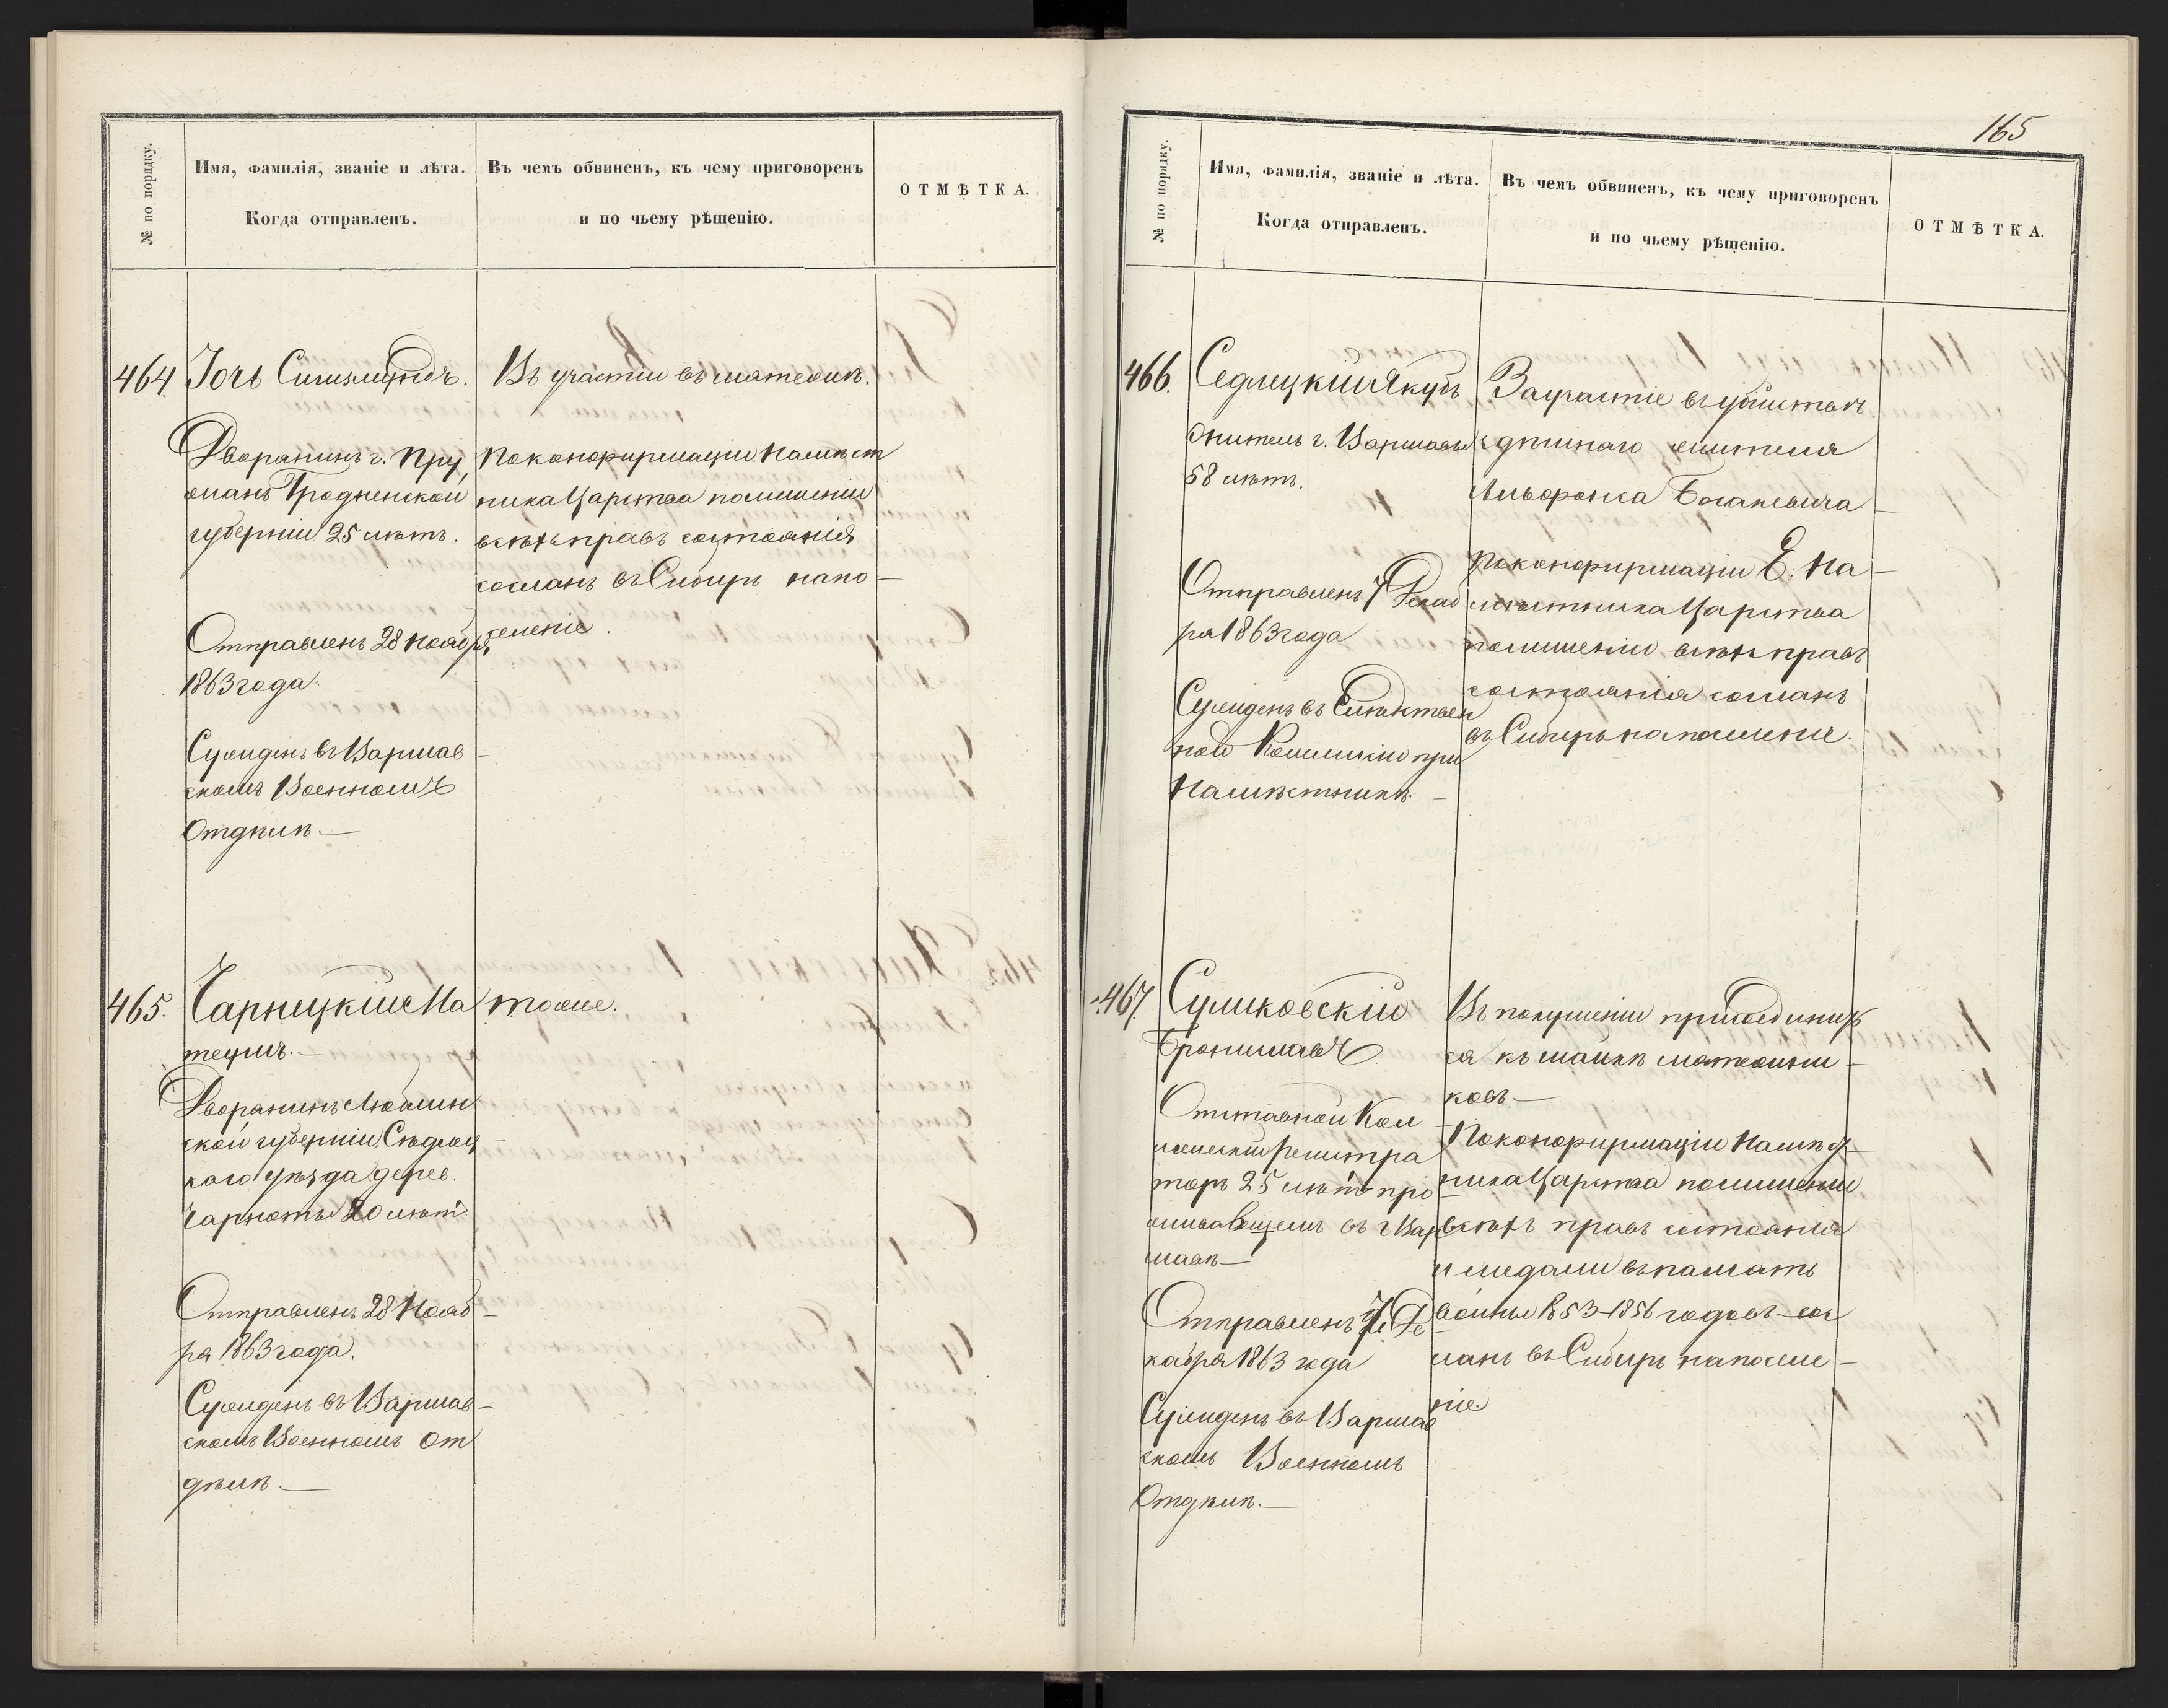 № по порядку.
Имя, фамилія, званіе и лѣта.
Когда отправленъ.
Въ чемъ обвиненъ, къ чему приговоренъ
и по чьему рѣшенію.
ОТМѢТКА.
464.
Іочъ Сигизмундъ.
Дворянинъ г. Пру
жанъ Гродненской
губерніи 25 лѣтъ.
Отправленъ 28 Ноября
1863 года.
Сужденъ въ Варшав-
скомъ Военномъ
Отдѣлѣ.—
Въ участіи въ мятежѣ.
По конфирмаціи Намѣст
ника Царства по лишеніи
всѣхъ правъ состоянія
сосланъ въ Сибирь на по-
селеніе.
465.
Чарнуцкій Ма
теушъ.—
Дворянинъ Люблин
ской губерніи, Сѣдлец-
каго уѣзда дерев.
Чарноты 20 лѣтъ.
Отправленъ 28 Нояб-
ря 1863 года.
Сужденъ въ Варшав-
скомъ Военномъ От
дѣлѣ.—
тоже.
165
№ по порядку.
Имя, фамилія, званіе и лѣта.
Когда отправленъ.
Въ чемъ обвиненъ, къ чему приговоренъ
и по чьему рѣшенію.
ОТМѢТКА.
466.
Седлецкій Якубъ
житель г. Варшавы
58 лѣтъ.
Отправленъ 7 Декаб
ря 1863 года
Сужденъ въ Слѣдствен
ной Коммисіи при
Намѣстникѣ.—
За участіе въ убійствѣ
здѣшняго жителя
Альфонса
По конфирмаціи Е. На-
мѣстника Царства
по лишеніи всѣхъ правъ
состоянія сосланъ
въ Сибирь на поселеніе.
467.
Суликовскій
Брониславъ.
Отставной Кол-
лежскій Регистра
торъ 25 лѣтъ про-
живающемъ въ г. Вар
шавѣ—
Отправленъ 7 Де-
кабря 1863 года
Сужденъ въ Варшав
скомъ Военномъ
Отдѣлѣ.—
Въ покушеніи присоединить
ся къ шайкѣ мятежни-
ковъ.—
По конфирмаціи Намѣст-
ника Царства по лишеніи
всѣхъ правъ состоянія
и медали въ память
войны 1853-1856 годовъ—сос
ланъ въ Сибирь на поселе-
ніе.